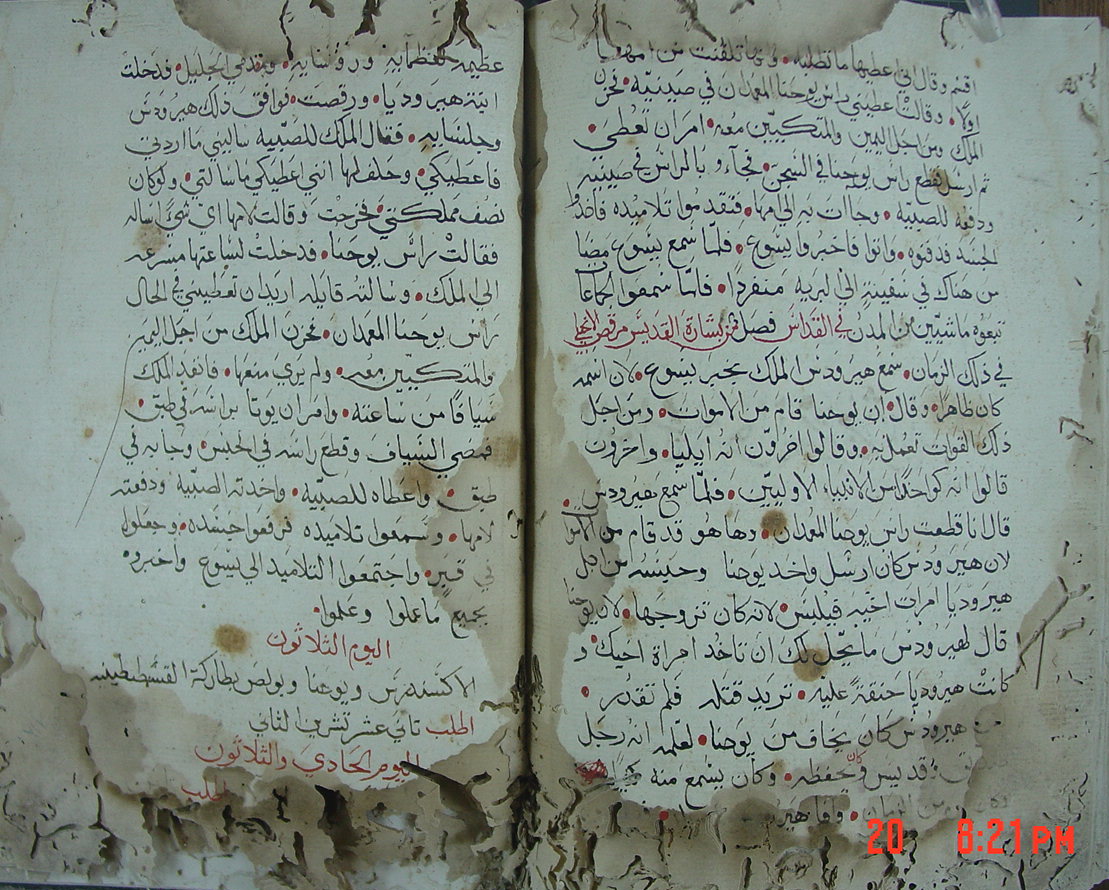 اقسم وقال اني اعطيها ما تطلبه • وانها تلقنت من امها
اولًا • وقالت اعطيني راس يوحنا المعمدان في صينيه • فحزن
الملك ومن اجل اليمين والمتكيين معه • امر ان تعطي •
ثم ارسل فقطع راس يوحنا في السجن • فجآءو بالراس في صينيه
ودفعه للصبيه • وجاات به الي امها • فتقدموا تلاميذه فاخدوا
الجسه فدفنوه • واتوا فاخبروا يسوع • فلما سمع يسوع مضا
من هناك في سفينةٍ الي البريه منفردًا • فلما سمعوا الجماعآ
تبعوه ماشيين من المدن في القداس فصل من بشارة القديس مرقص الانجيلي
في ذلك الزمان • سمع هيرودس الملك بخبر يسوع • لان اسمه
كان ظاهرًا • وقال ان يوحنا قام من الاموات • ومن اجل
ذلك القوات تعمل به • وقالوا اخرون انه ايليا • واخرون
قالوا انه كواحدًا من الانبياء الاوليين • فلما سمع هيرودس •
قال انا قطعت راس يوحنا المعمدان • وها هو قد قام من الاموا
لان هيرودس كان ارسل واخد يوحنا وحبسه من اجل
هيروديا امراة اخيه فيلبس • لانه كان تزوجها • لان يوحنا
قال لهيرودس ما يحل لك ان تاخد امراة اخيك • و
كانت هيروديا حنقةً عليه • تريد قتله فلم تقدر •
هيرودس كان يخاف من يوحنا • لعلمه انه رجل
وقديس وكان يحفظه • وكان يسمع منه
عظيمه لعظمآيه ورووسايه • ومقدمي الجليل • فدخلت
ابنة هيروديا • ورقصت • فوافق ذلك هيرودس
وجلسايه • فقال الملك للصبيه ساليني ما اردتي
فاعطيكي • وحلف لها انني اعطيكي ما سالتي • ولو كان
نصف مملكتي • فخرجت وقالت لامها اي شيء اساله
فقالت راس يوحنا • فدخلت لساعتها مسرعه
الي الملك • وسالته قايله اريد ان تعطيني في الحال
راس يوحنا المعمدان • فحزن الملك من اجل اليميه
والمتكيين معه • ولم يري منعها • فانفد الملك
سيافًا من ساعته • وامر ان يوتا براسه في طبق •
فمضي السياف وقطع راسه في الحبس • وجا به في
طبق • واعطاه للصبيه • واخدته الصبيه ودفعته
لامها • وسمعوا تلاميده فرفعوا جسده • وجعلوا
في قبرٍ • واجتمعوا التلاميد الي يسوع واخبروه
بجميع ما عملوا وعلموا •
اليوم الثلاثون
الاكسندرس ويوحنا وبولص بطاركة القسطنطينيه
اطلب تاني عشر تشرين الثاني
اليوم الحادي والثلاثون
اطلب
20 8:21 PM